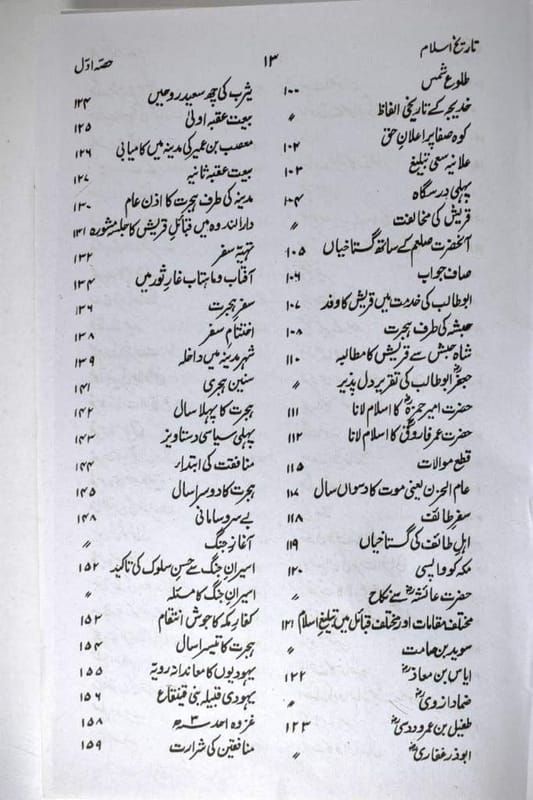 تاریخ اسلام ۱۳ حصّہ اوّل
طلوع شمس ۱۰۰
خدیجہ کے تاریخی الفاظ 〃
کوہ صفا پر اعلانِ حق ۱۰۲
علانیہ سعی تبلیغ ۱۰۳
پہلی درسگاہ ۱۰۴
قریش کی مخالفت 〃
آنحضرت صلعم کے ساتھ گستاخیاں ۱۰۵
صاف جواب ۱۰۶
ابوطالب کی خدمت میں قریش کا وفد ۱۰۷
حبشہ کی طرف ہجرت ۱۰۸
شاہ حبش سے قریش کا مطالبہ ۱۱۰
جعفرؓ ابوطالب کی تقریر دل پذیر 〃
حضرت امیر حمزہؓ کا اسلام لانا ۱۱۱
حضرت عمر فاروقؓ کا اسلام لانا ۱۱۲
قطع موالات ۱۱۵
عام الحزن یعنی موت کا دسواں سال ۱۱۷
سفر طائف ۱۱۸
اہل طائف کی گستاخیاں ۱۱۹
مکہ کو واپسی ۱۲۰
حضرت عائشہؓ سے نکاح 〃
مختلف مقامات اور مختلف قبائل میں تبلیغ اسلام ۱۲۱
سوید بن صامت 〃
ایاس بن معاذؓ ۱۲۲
ضماد ازدیؓ 〃
طفیل بن عمرو دوسیؓ ۱۲۳
ابوذر غفاریؓ 〃
یثرب کی چھ سعید روحیں ۱۲۴
بیعت عقبہ اولیٰ ۱۲۵
معصب بن عمیر کی مدینہ میں کامیابی ۱۲۶
بیعت عقبہ ثانیہ ۱۲۷
مدینہ کی طرف ہجرت کا اذن عام ۱۳۰
دارالندوہ میں قبائل قریش کا جلسہ مشورہ ۱۳۱
تہیّہ سفر ۱۳۲
آفتاب و ماہتاب غارِ ثور میں ۱۳۴
سفر ہجرت ۱۳۶
اختتام سفر ۱۳۸
شہر مدینہ میں داخلہ ۱۳۹
سنین ہجری ۱۴۱
ہجرت کا پہلا سال ۱۴۲
پہلی سیاسی دستاویز ۱۴۳
منافقت کی ابتداء ۱۴۴
ہجرت کا دوسرا سال ۱۴۵
بے سرو سامانی ۱۴۸
آغازِ جنگ 〃
اسیرانِ جنگ سے حسنِ سلوک کی تاکید ۱۵۲
اسیرانِ جنگ کا مسئلہ 〃
کفارِ مکہ کا جوش انتقام ۱۵۳
ہجرت کا تیسرا سال ۱۵۴
یہودیوں کا معاندانہ رویہ ۱۵۵
یہودی قبیلہ بنی قینقاع ۱۵۷
غزوہ احد ۳ھ ۱۵۸
منافقین کی شرارت ۱۵۹